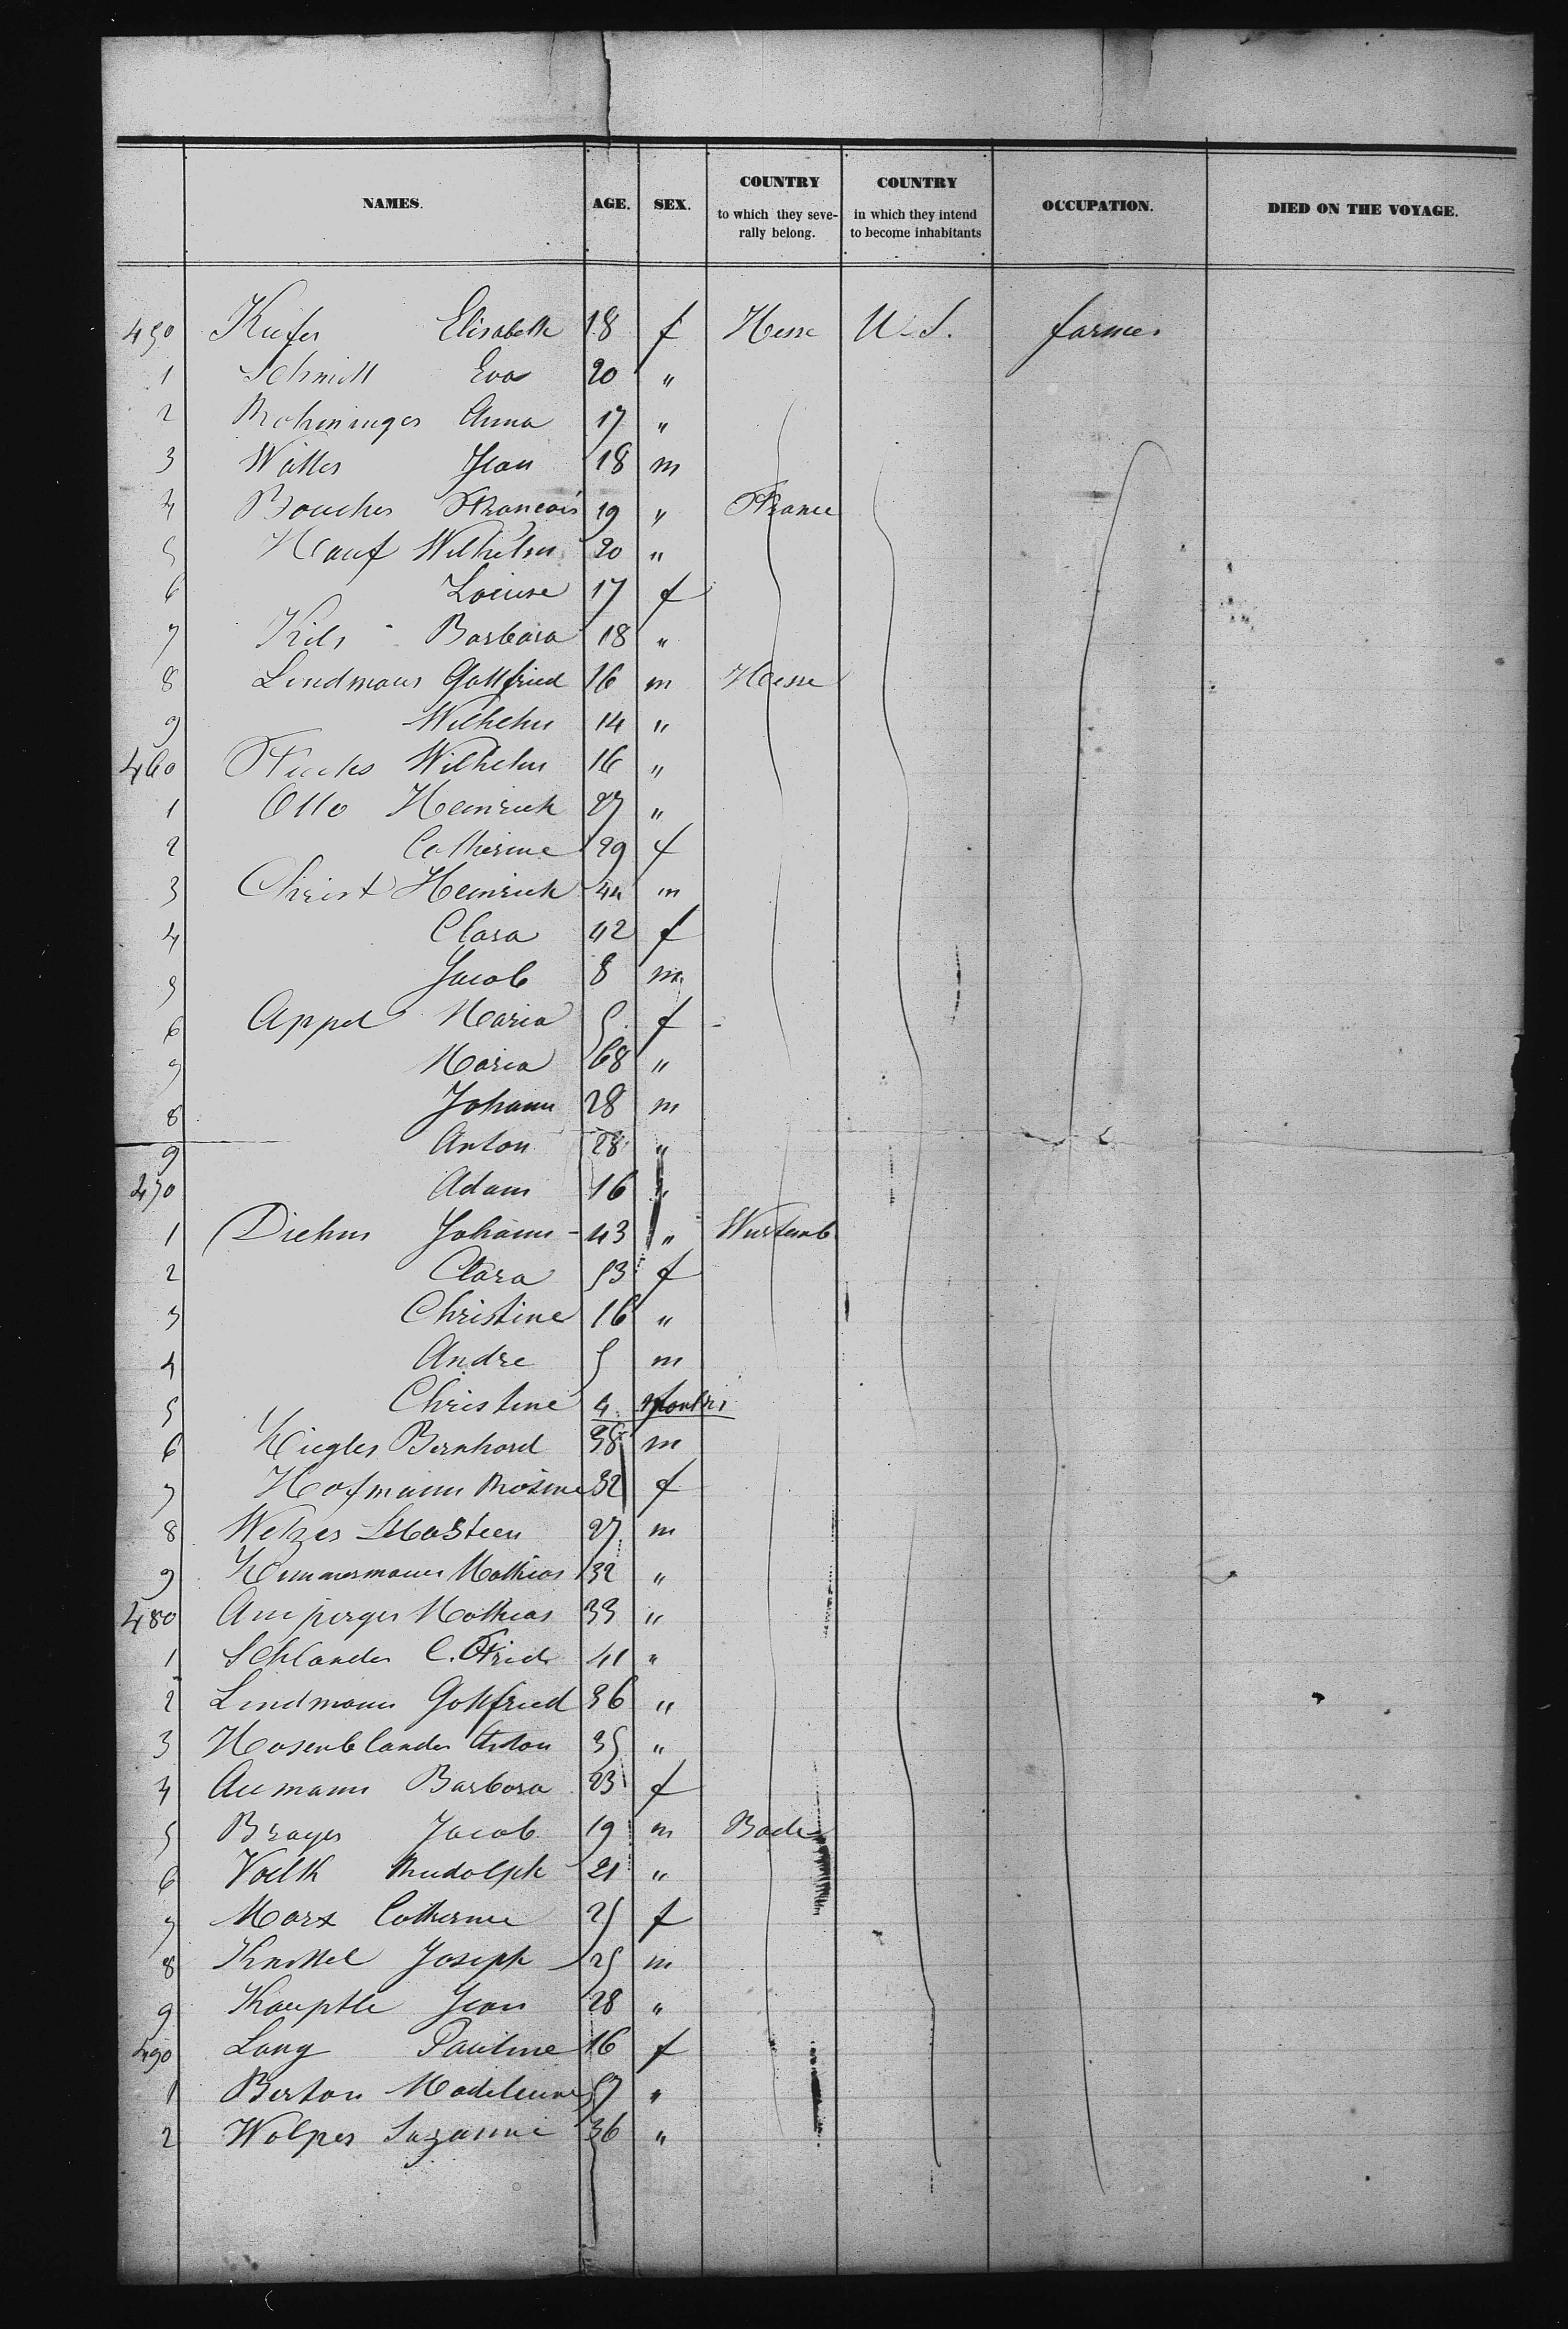 NAMES. AGE. SEX. COUNTRY to which they seve- rally belong. COUNTRY in which they intend to become inhabitants OCCUPATION. DIED ON THE VOYAGE.
450 Kiefer Elisabeth 18 f Hesse U.S. farmer
1 Schmitt Eva 20 "
2 Anna 17 "
3 Jean 18 m
4 Boucher Francois 19 " France
5 Hauf Wilhelm 20 "
6 Louise 17 f
7 Barbara 18 "
8 Lindmann Gottfried 16 m Hesse
9 Wilhelm 14 "
460 Fuchs Wilhelm 16 "
1 Otto Heinrich 27 "
2 Catherine 29 f
3 Christ Heinrich 44 m
4 Clara 42 f
5 Jacob 8 m
6 Appel Maria 5 f
7 Maria 68 "
8 Johann 28 m
9 Anton 28 "
470 Adam 16 "
1 Diehm Johann 43 " Wurtemb
2 Clara 53 f
3 Christine 16 "
4 Andre 5 m
5 Christine 4 Months
6 Ziegler Bernhard 38 m
7 Hofmann Rosine 32 f
8 Wetzer Sebastien 27 m
9 Zimmermann Mathias 32 "
480 Amperger Mathias 33 "
1 Schlander C. Fried 41 "
2 Lindmann Gottfried 36 "
3 Hasenblander Anton 35 "
4 Aumann Barbara 23 f
5 Brayer Jacob 19 m Bade
6 Voelk Rudolph 21 "
7 Marx Catherine 25 f
8 Knittel Joseph 25 m
9 Jean 28 "
490 Lang Pauline 16 f
1 Berton Madeleine 57 "
2 Wolper Suzanne 36 "